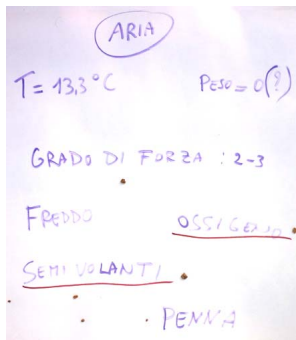 ARIA
T= 13,3°C PESO = 0(?)
GRADO DI FORZA : 2-3
FREDDO OSSIGENO
SEMI VOLANTI
PENNA